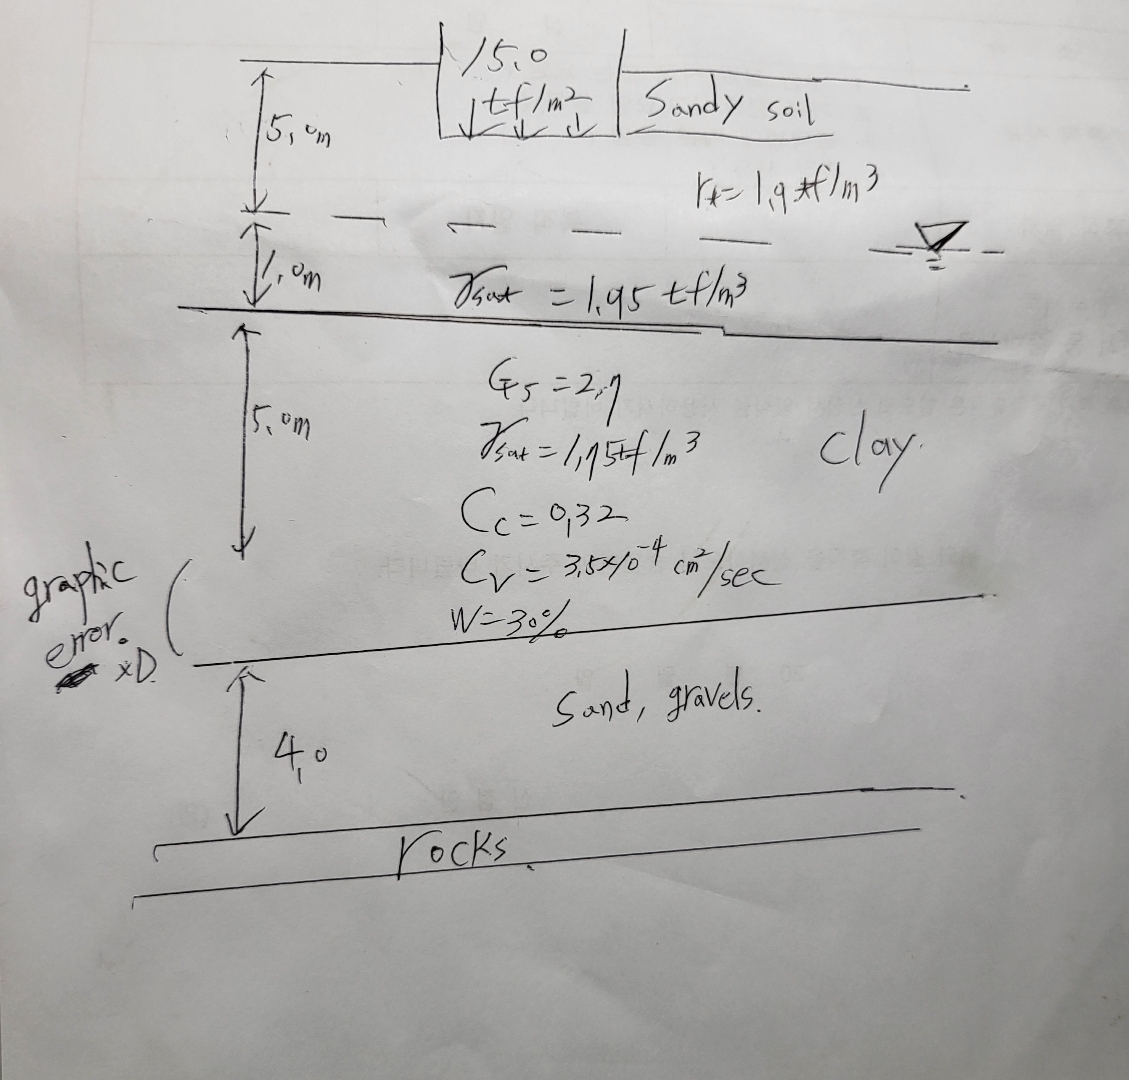 15.0
tf/m²
Sandy soil
5.0m
r_t = 1.9 tf/m³
1.0m
γsat = 1.95 tf/m³
Gs = 2.7
5.0m
γsat = 1.75tf/m³
Clay.
Cc = 0.32
Cv = 3.5×10⁻⁴ cm²/sec
graphic
error.
xD.
W = 30%
Sand, gravels.
4.0
rocks.